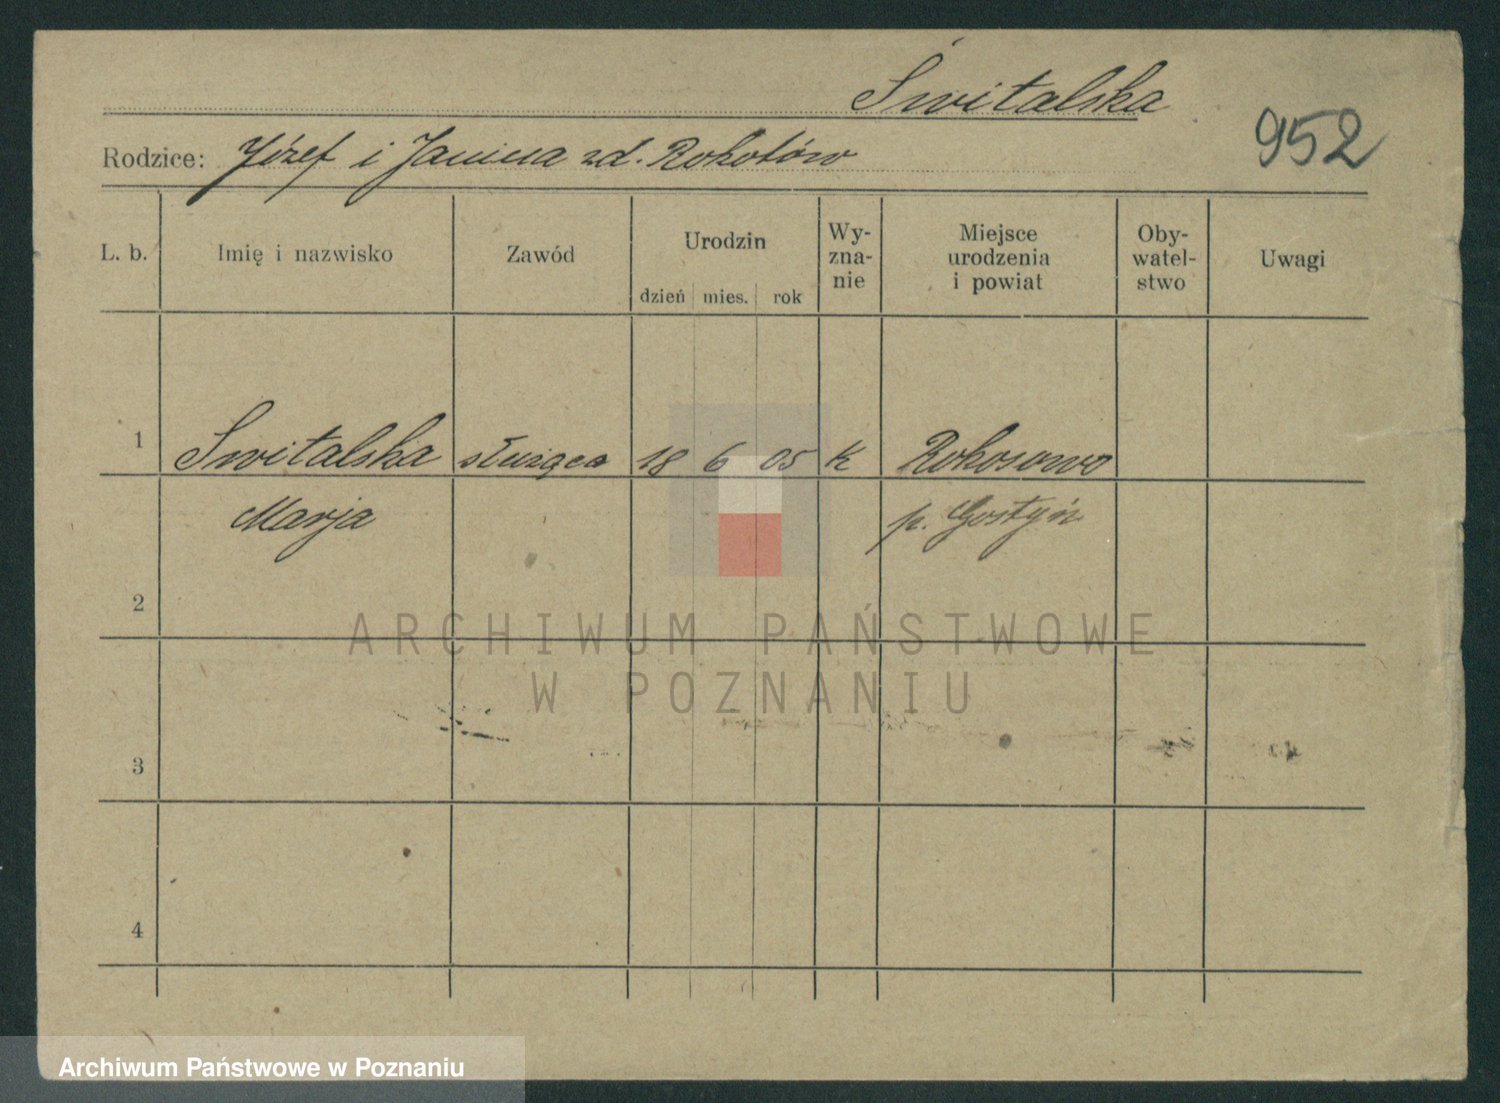 Świtalska
952
Rodzice: Józef i Janina zd. Rokotów
L. b. Imię i nazwisko Zawód Urodzin dzień mies. rok Wy-zna-nie Miejsce urodzenia i powiat Oby-watel-stwo Uwagi
1 Switalska służąca 18 6 05 K Rokosowo
Marja p. Gostyń
2
ARCHIWUM PAŃSTWOWE
W POZNANIU
3
4
Archiwum Państwowe w Poznaniu